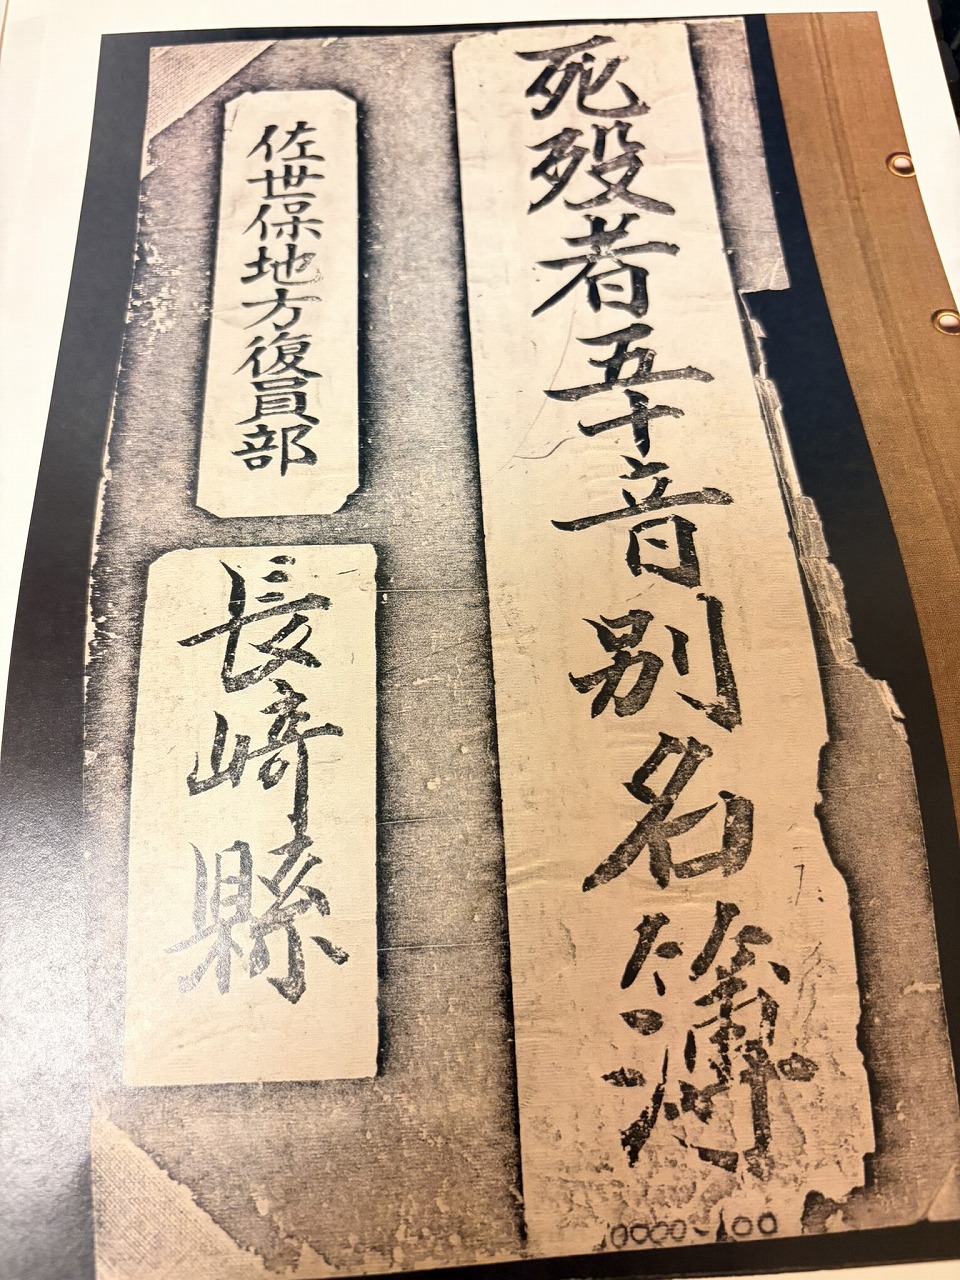 死歿者五十音別名簿
佐世保地方復員部
長崎縣